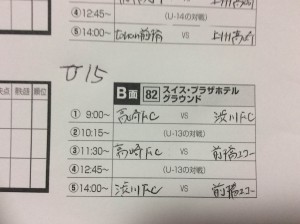 ④12:45~ (U-14の対戦) 上州FC高崎
⑤14:00~ 前橋 VS 上州FC高崎
U15
失点 得失点 順位
B面 82 スイス・プラザホテル
グラウンド
①9:00~ 高崎FC VS 渋川FC
②10:15~ (U-13の対戦)
③11:30~ 高崎FC VS 前橋エコー
④12:45~ (U-13の対戦)
⑤14:00~ 渋川FC VS 前橋エコー